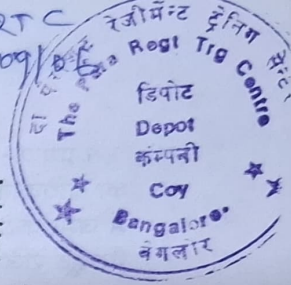 RTC
दा पैरा रेजीमेन्ट ट्रेनिंग सेन्टर
The Para Regt Trg Centre
डिपोट
Depot
कंम्पनी
Coy
Bangalore.
बंगलौर